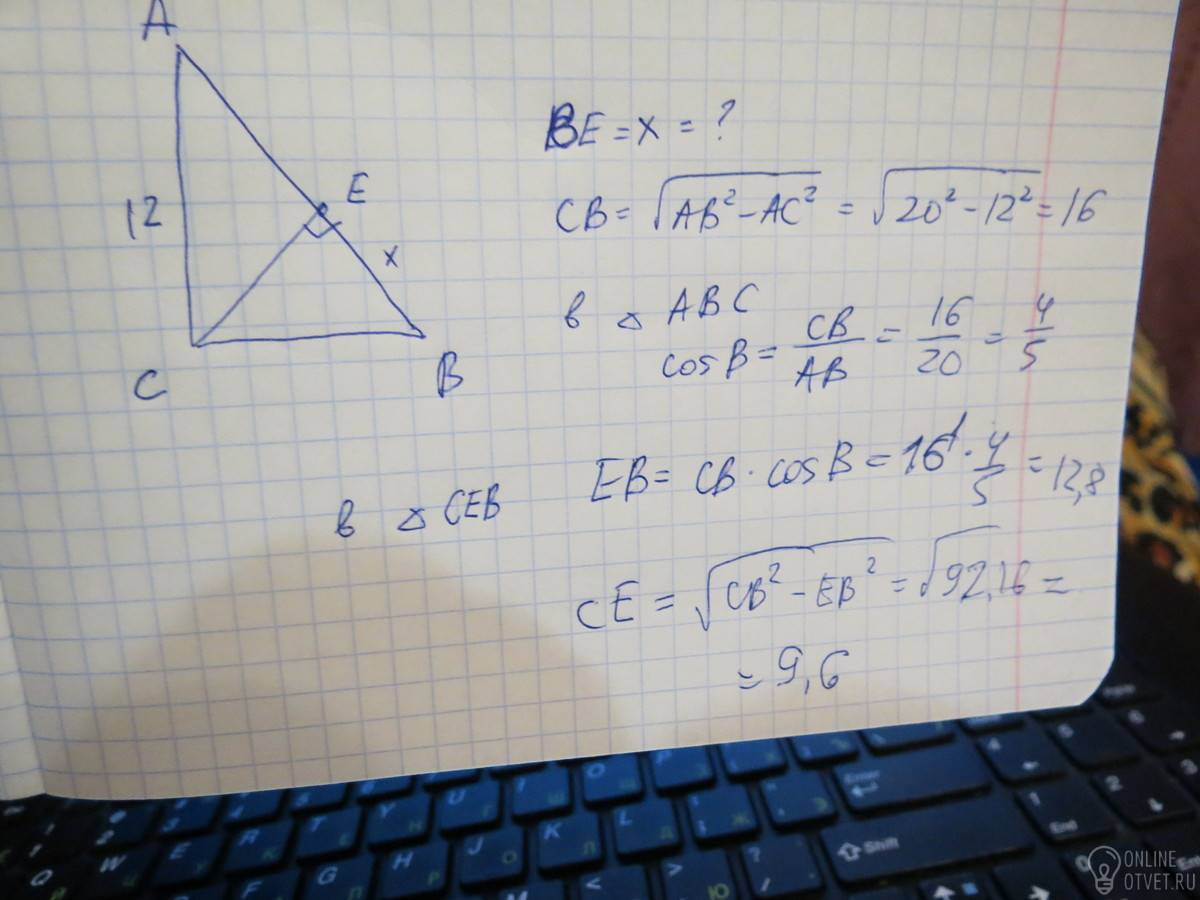 A
12
E
x
C
B
BE = x = ?
CB = √AB² − AC² = √20² − 12² = 16
в △ ABC
cos B = CB/AB = 16/20 = 4/5
в △ CEB
EB = CB · cos B = 16 · 4/5 = 12,8
CE = √CB² − EB² = √92,16 =
= 9,6
Enter
Shift
End
ONLINE
OTVET.RU